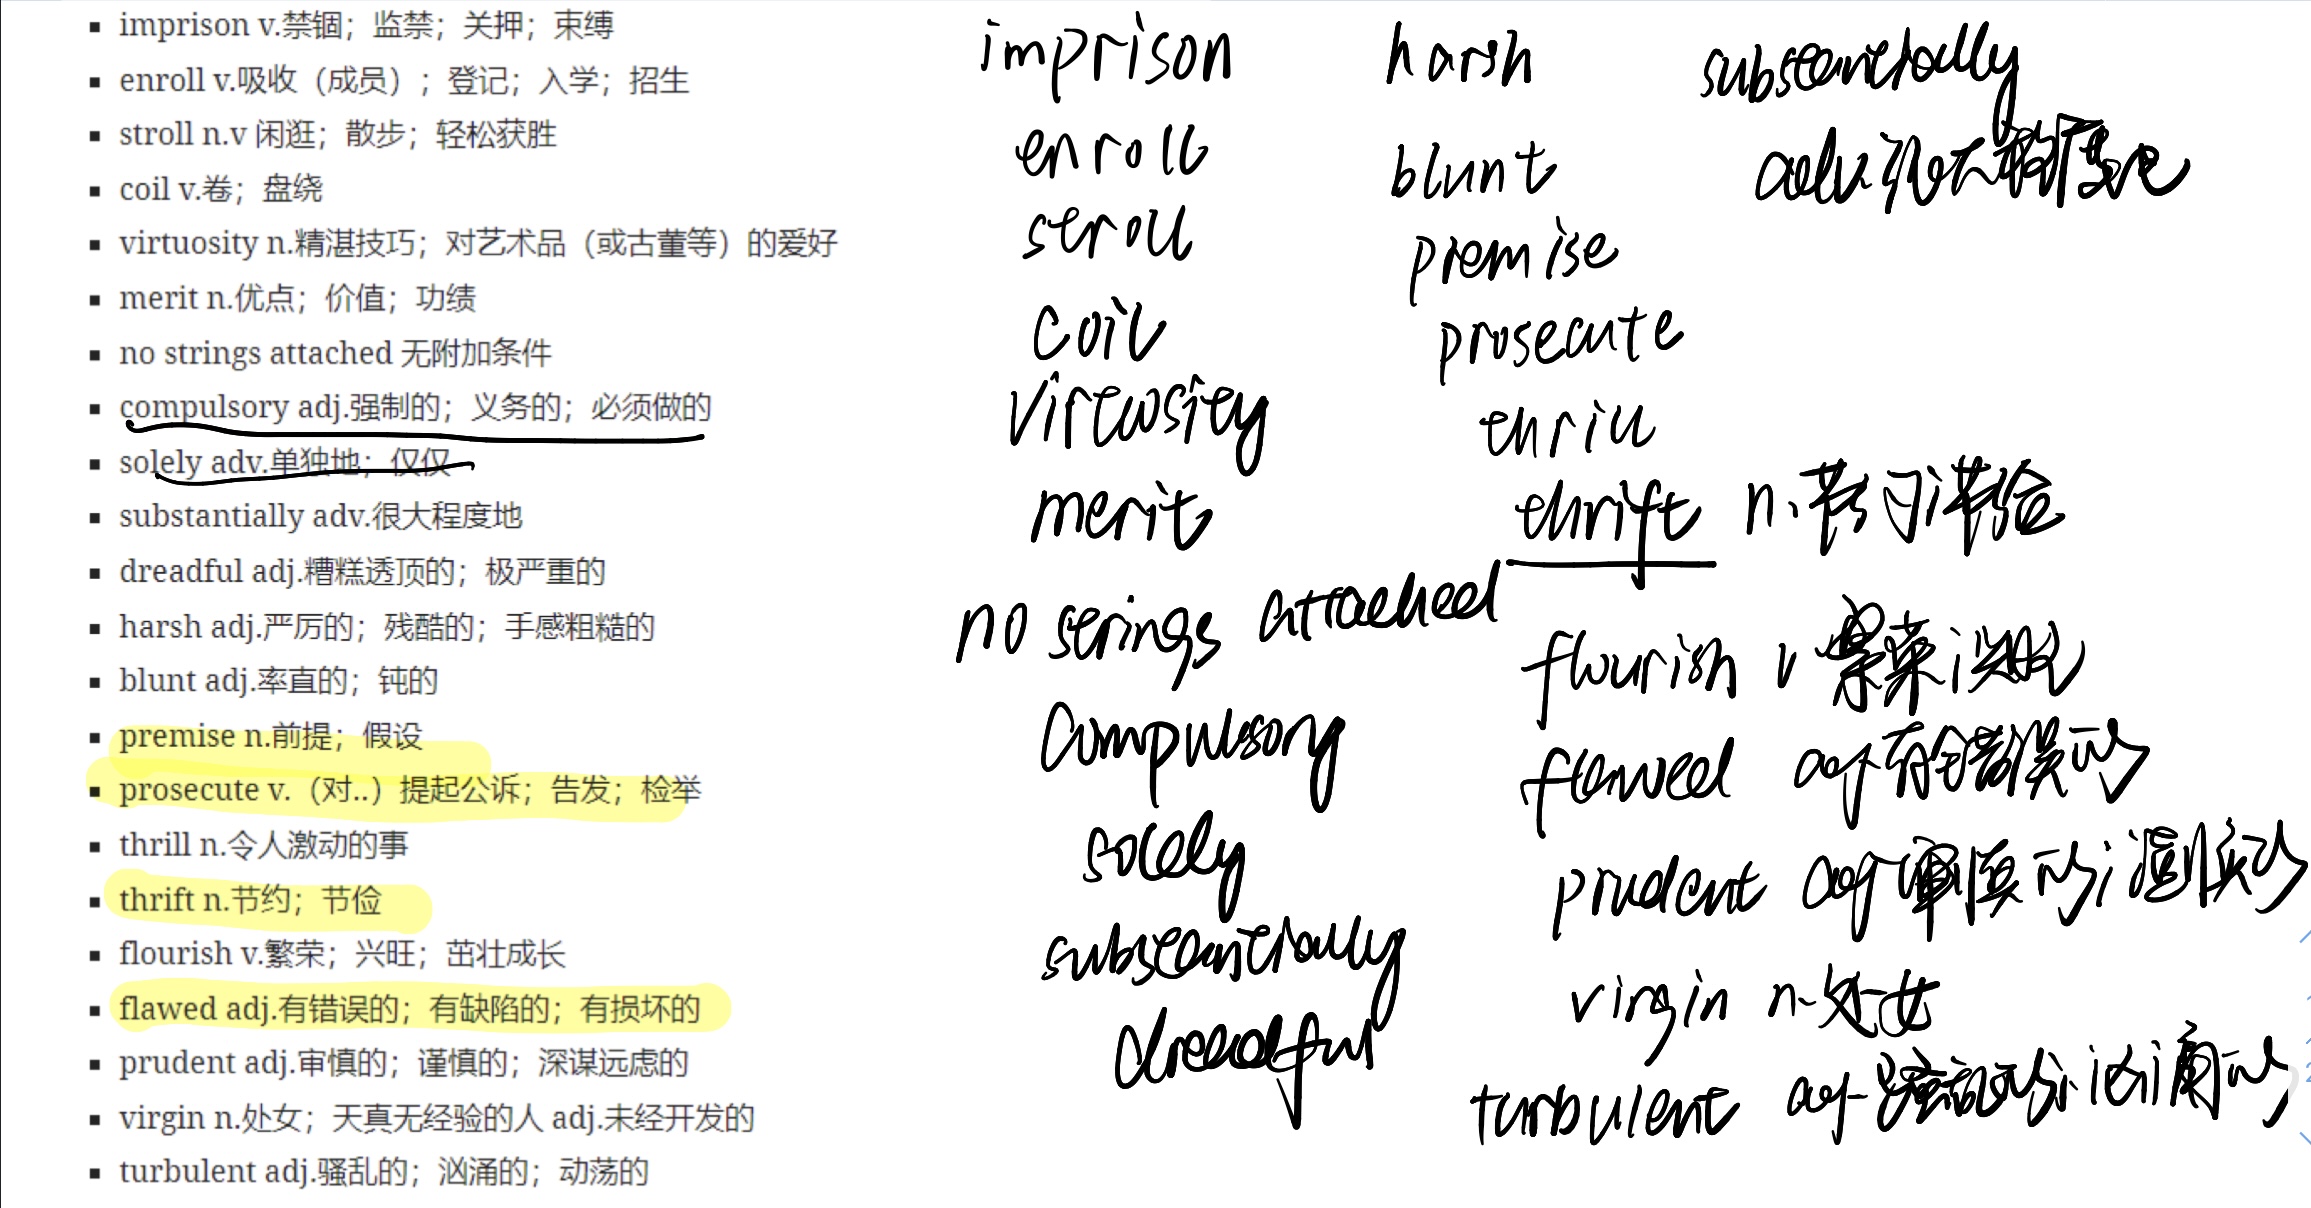 ▪ imprison v.禁锢；监禁；关押；束缚
▪ enroll v.吸收（成员）；登记；入学；招生
▪ stroll n.v 闲逛；散步；轻松获胜
▪ coil v.卷；盘绕
▪ virtuosity n.精湛技巧；对艺术品（或古董等）的爱好
▪ merit n.优点；价值；功绩
▪ no strings attached 无附加条件
▪ compulsory adj.强制的；义务的；必须做的
▪ solely adv.单独地；仅仅
▪ substantially adv.很大程度地
▪ dreadful adj.糟糕透顶的；极严重的
▪ harsh adj.严厉的；残酷的；手感粗糙的
▪ blunt adj.率直的；钝的
▪ premise n.前提；假设
▪ prosecute v.（对..）提起公诉；告发；检举
▪ thrill n.令人激动的事
▪ thrift n.节约；节俭
▪ flourish v.繁荣；兴旺；茁壮成长
▪ flawed adj.有错误的；有缺陷的；有损坏的
▪ prudent adj.审慎的；谨慎的；深谋远虑的
▪ virgin n.处女；天真无经验的人 adj.未经开发的
▪ turbulent adj.骚乱的；汹涌的；动荡的
imprison
enroll
stroll
coil
virtuosity
merit
no strings attached
compulsory
solely
substantially
dreadful
harsh
blunt
premise
prosecute
thrill
thrift n.节约；节俭
flourish v 繁荣；兴旺
flawed adj 有错误的
prudent adj 审慎的；谨慎的
virgin n.处女
turbulent adj 骚乱的；汹涌的
substantially
adv.很大程度地